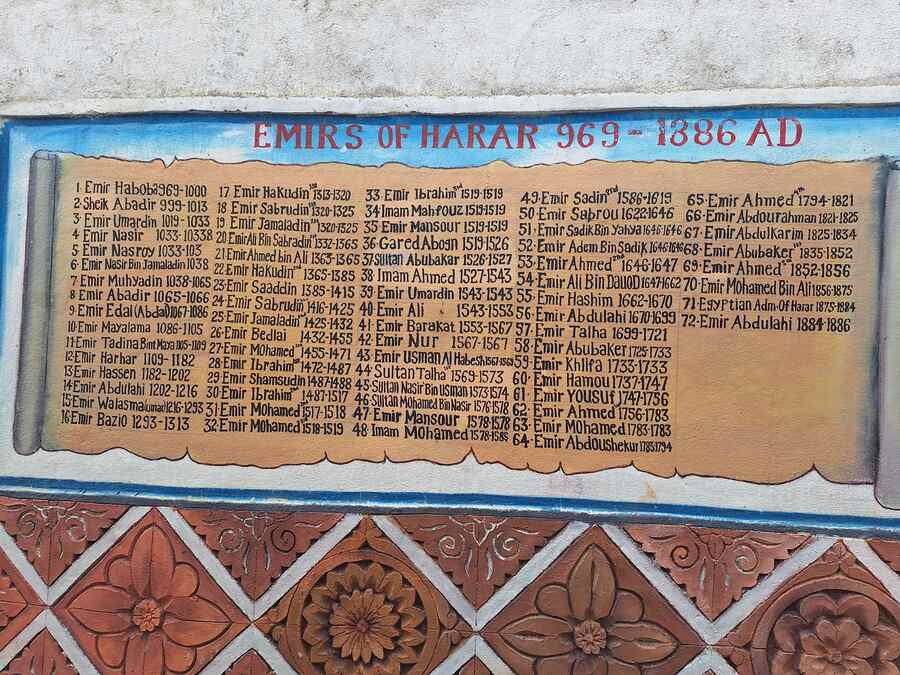 EMIRS OF HARAR 969 - 1386 AD
1 Emir Haboba 969-1000
2. Sheik Abadir 999-1013
3. Emir Umardin 1019-1033
4 Emir Nasir 1033-10338
5 Emir Nasroy 1033-103
6. Emir Nasir Bin Jamaladin 1038
7 Emir Muhyadin 1038-1065
8 Emir Abadir 1065-1066
9 Emir Edal (Abdal) 1067-1086
10 Emir Mayalama 1086-1105
11 Emir Tadina Bint Maya 1105-1109
12 Emir Harhar 1109-1182
13 Emir Hassen 1182-1202
14 Emir Abdulahi 1202-1216
15 Emir Walasma (umar) 1216-1293
16 Emir Bazio 1293-1313
17 Emir Hakudin 1st 1313-1320
18 Emir Sabrudin 1st 1320-1325
19 Emir Jamaladin 1st 1320-1325
20 Emir Ali Bin Sabradin 1332-1365
21 Emir Ahmed bin Ali 1363-1365
22 Emir Hakudin 1365-1385
23 Emir Saaddin 1385-1415
24 Emir Sabrudin 1416-1425
25 Emir Jamaladin 1425-1432
26 Emir Bedlai 1432-1455
27 Emir Mohamed 1455-1471
28 Emir Ibrahim 1st 1472-1487
29 Emir Shamsudin 1487-1488
30 Emir Ibrahim 1487-1517
31 Emir Mohamed 1517-1518
32 Emir Mohamed 1518-1519
33 Emir Ibrahim 1519-1519
34 Imam Mahfouz 1519-1519
35 Emir Mansour 1519-1519
36 Gared Abogn 1519-1526
37 Sultan Abubakar 1526-1527
38 Imam Ahmed 1527-1543
39 Emir Umardin 1543-1543
40 Emir Ali 1543-1553
41 Emir Barakat 1553-1567
42 Emir Nur 1567-1567
43 Emir Usman Al Habesh 1567-1569
44 Sultan Talha 1569-1573
45 Sultan Nasir Bin Usman 1573-1574
46 Sultan Mohamed Bin Nasir 1576-1578
47 Emir Mansour 1578-1578
48 Imam Mohamed 1578-1585
49 Emir Sadin 2nd 1586-1619
50 Emir Sabrou 1622-1646
51 Emir Sadik Bin Yahya 1646-1646
52 Emir Adem Bin Sadik 1646-1646
53 Emir Ahmed 2nd 1646-1647
54 Emir Ali Bin Dauod 1647-1662
55 Emir Hashim 1662-1670
56 Emir Abdulahi 1670-1699
57 Emir Talha 1699-1721
58 Emir Abubaker 1725-1733
59 Emir Khlifa 1733-1733
60 Emir Hamou 1737-1747
61 Emir Yousuf 1747-1756
62 Emir Ahmed 1756-1783
63 Emir Mohamed 1783-1783
64 Emir Abdoushekur 1783-1794
65 Emir Ahmed 4th 1794-1821
66 Emir Abdourahman 1821-1825
67 Emir Abdulkarim 1825-1834
68 Emir Abubaker 1835-1852
69 Emir Ahmed 1852-1856
70 Emir Mohamed Bin Ali 1856-1875
71 Egyptian Adm. Of Harar 1875-1884
72 Emir Abdulahi 1884-1886